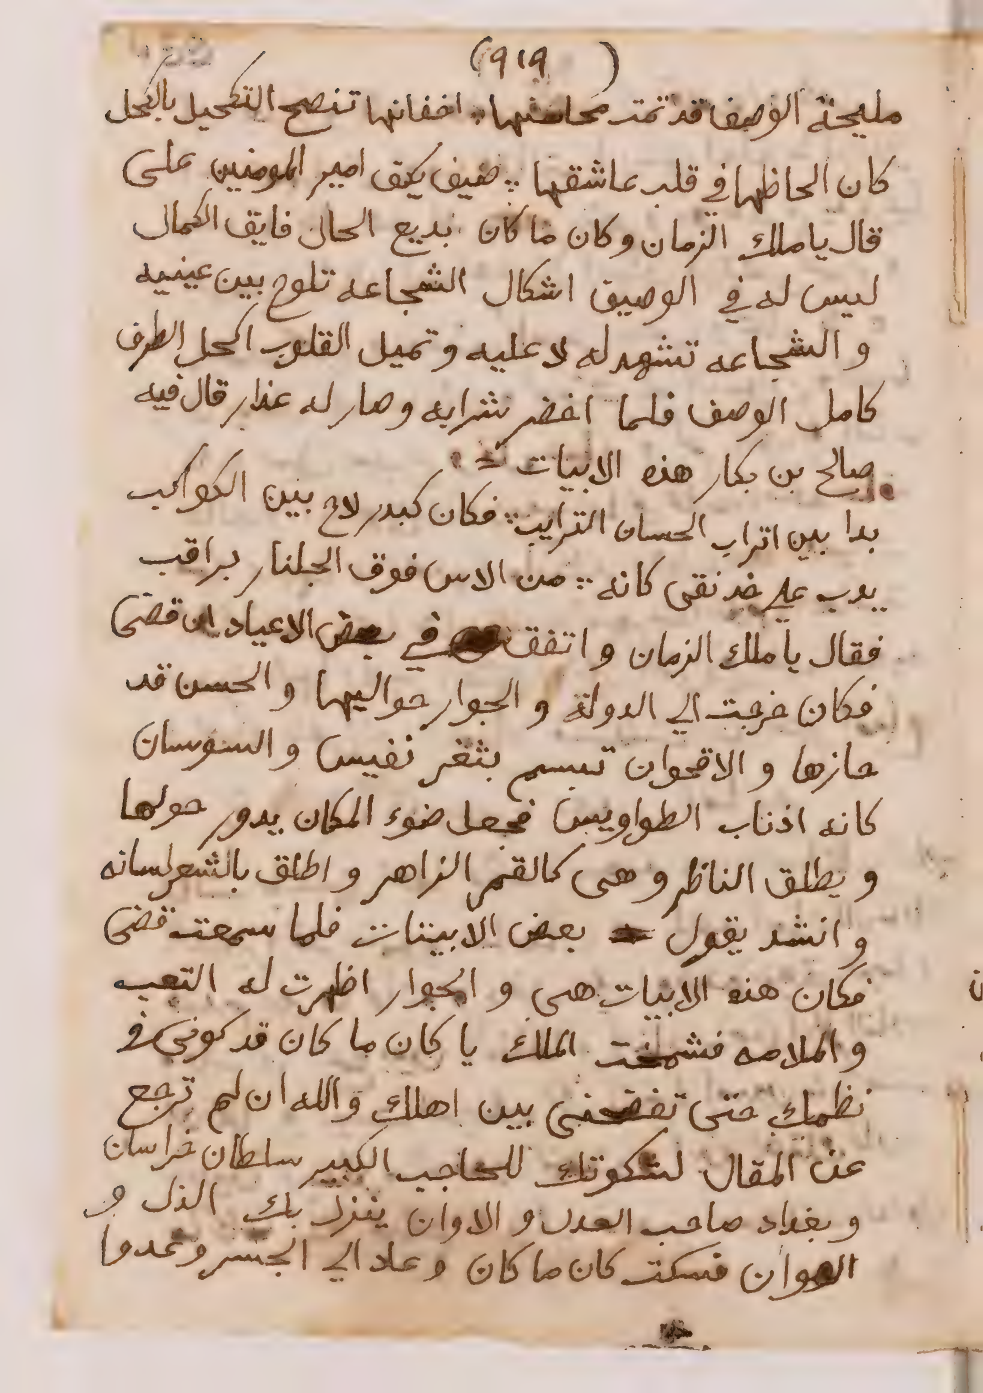 (٩١٩)
مليحة الوصف قد تمت محاسنها اخفانها تنصح التكحيل بالكحل
كان الحاظها في قلب عاشقها ∴ ضيف بكف امير المومنين على
قال يا ملك الزمان وكان ما كان بديع الحال فايق الكمال
ليس له في الوصيف اشكال الشجاعه تلوح بين عينيه
و الشجاعه تشهد له لا عليه و تميل القلوب اكحل الطرف
كامل الوصف فلما اخضر شرابه وصار له عذار قال فيه
صالح بن بكار هذه الابيات
بدا بين اتراب الحسان الترايب ∴ فكان كبدر لاح بين الكواكب
يدب على خد نقى كانه ∴ من الاس فوق الجلنار يراقب
فقال يا ملك الزمان و اتفق في بعض الاعياد ان قضى
فكان خرجت الي الدولة و الجوار حواليها و الحسن قد
حازها و الاقحوان تبسم بثغر نفيس و السوسان
كانه اذناب الطواويس فجعل ضوء المكان يدور حولها
و يطلق الناظر و هى كالقمر الزاهر و اطلق بالشعر لسانه
و انشد يقول بعض الابيات فلما سمعت قضى
فكان هذه الابيات هى و الجوار اظهرت له التعب
و الملامه فشمخت الملك يا كان ما كان قد كونى في
نظمك حتى تفضحنى بين اهلك و الله ان لم ترجع
عن المقال لشكوتك للحاجب الكبير سلطان خراسان
و بغداد صاحب العدل و الاوان ينزل بك الذل و
الهوان فسكت كان ما كان و عاد الي الجسر و غدوا